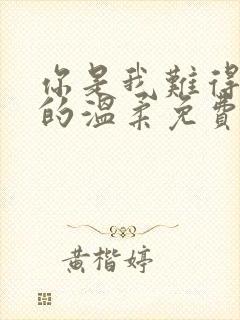 你是我難得
的溫柔免費
黃楷婷